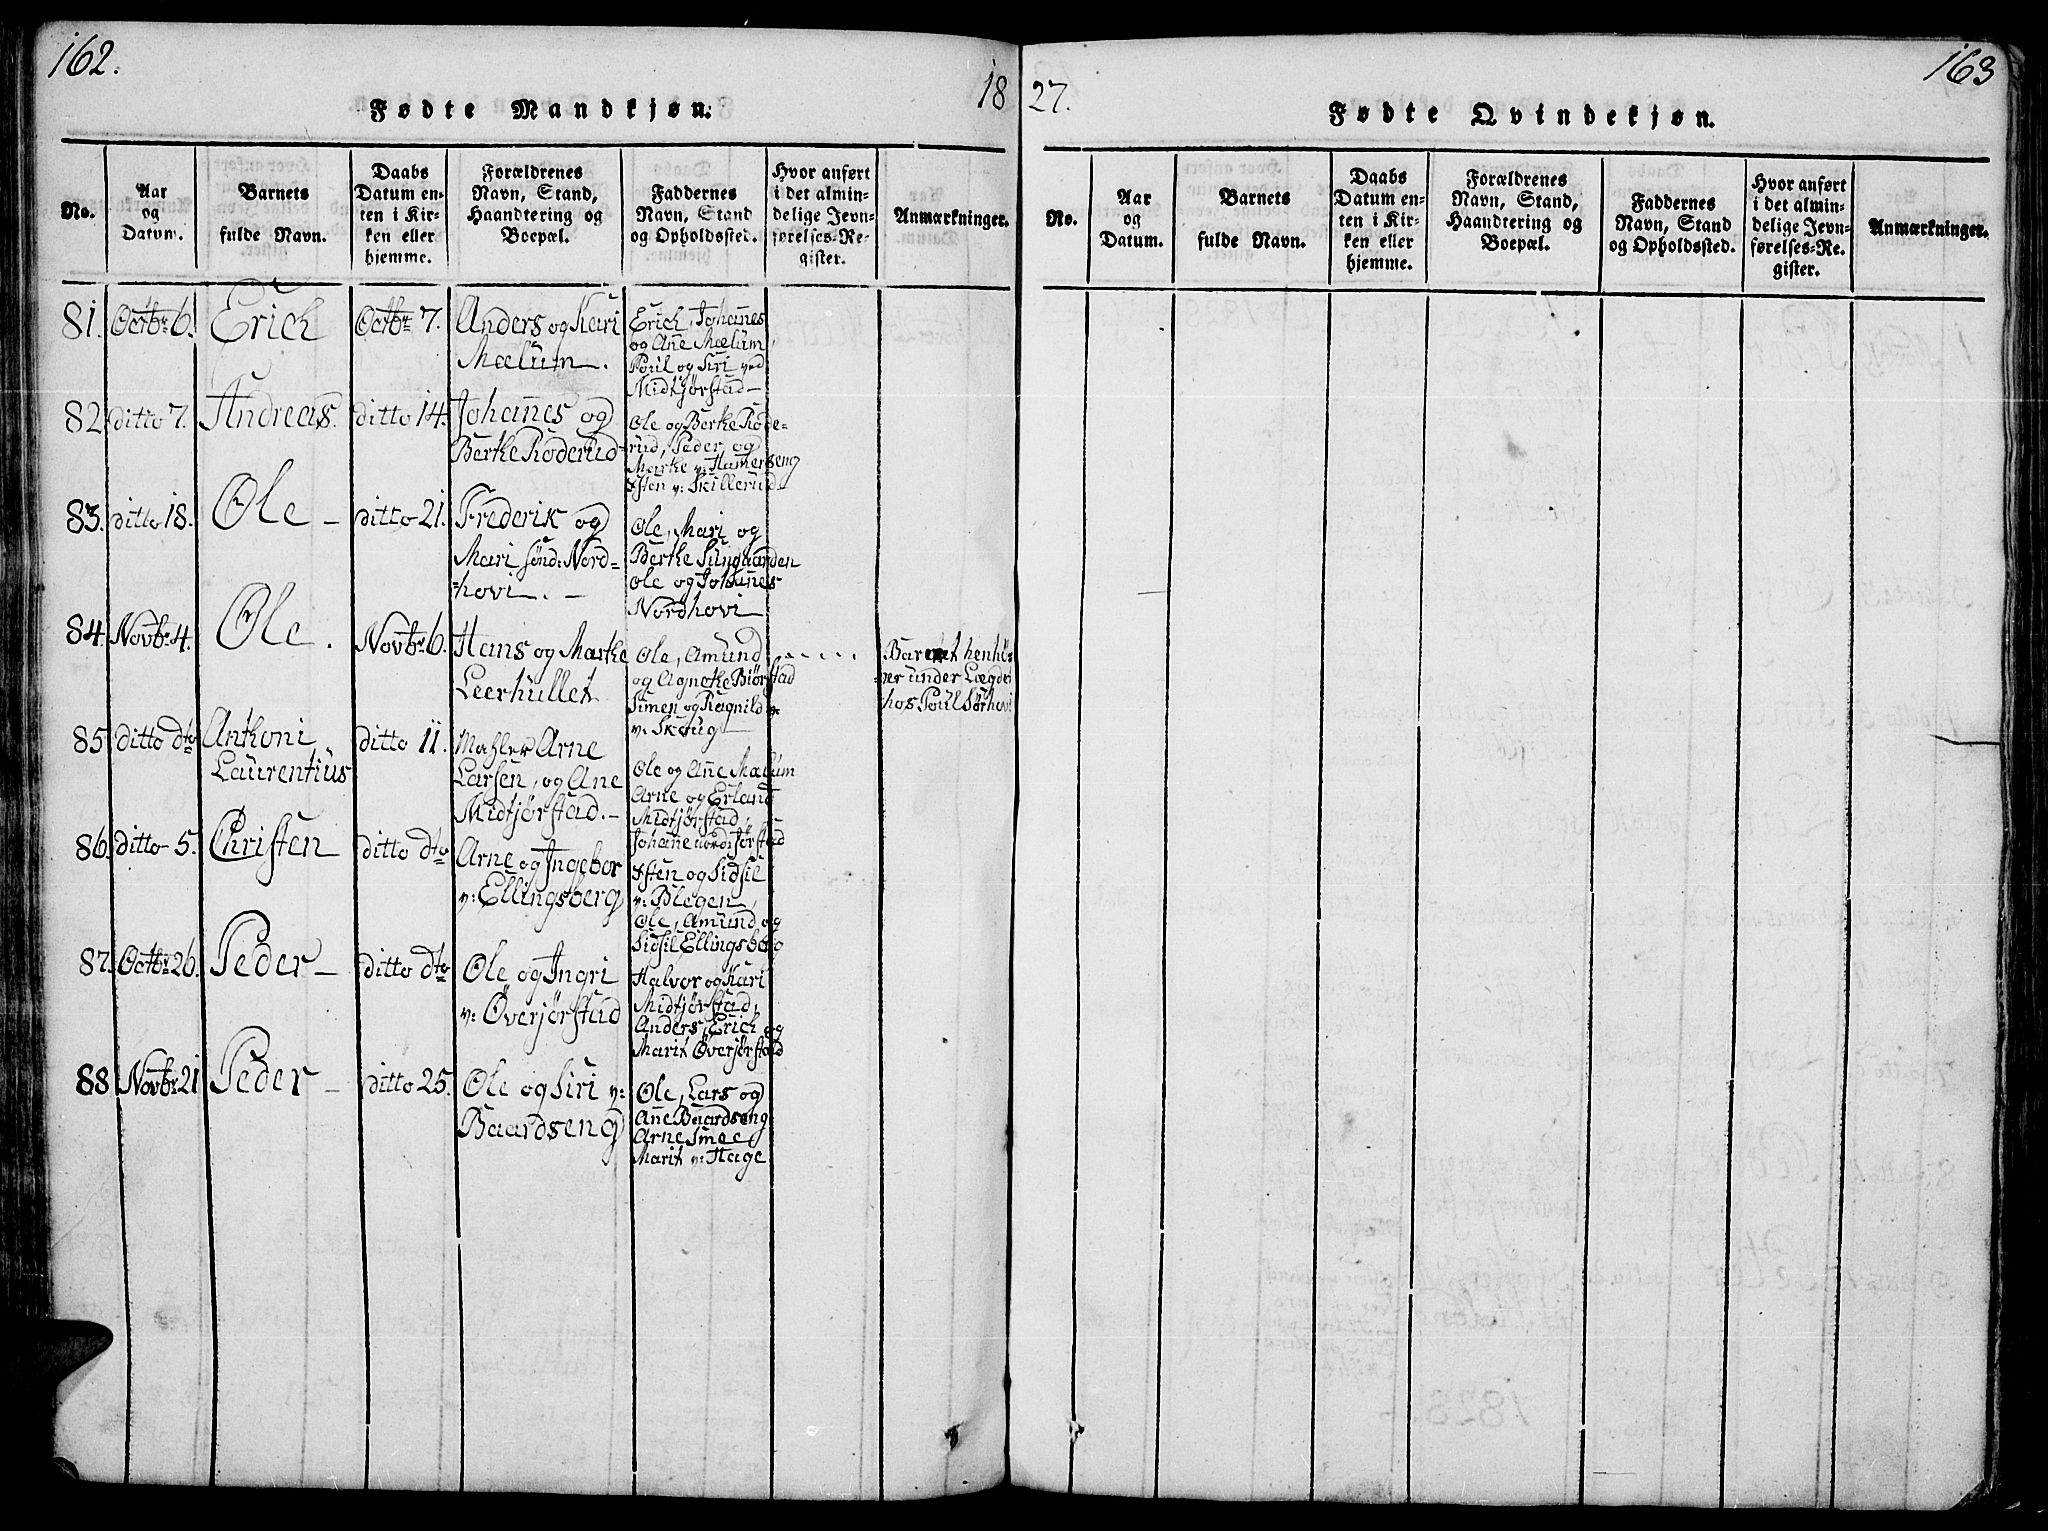 162.
18
Fødte Mandkjøn.
No.
Aar
og
Datum.
Barnets
fulde Navn.
Daabs
Datum en-
ten i Kir-
ken eller
hjemme.
Forældrenes
Navn, Stand,
Haandtering og
Boepæl.
Faddernes
Navn, Stand
og Opholdssted.
Hvor anført
i det almin-
delige Jevn-
førelses-Re-
gister.
Anmærkninger.
81.
Octbr 6.
Erich
Octbr 7.
Anders og Kari
Mælum.
Erich, Johañes
og Añe Mælum,
Poul og Siri ved
Midtjørstad-
82
ditto 7.
Andreas.
ditto 14.
Johañes og
Berthe Röderud
Ole og Berthe Röde-
rud, Peder og
Marthe v: Hamerseng
Østen v: Skillerud.
83.
ditto 18.
Ole -
ditto 21.
Frederik og
Mari sönd: Nord-
=hovi. -
Ole, Mari og
Berthe Suugaarden
Ole og Johañes
Nordhovi
84.
Novbr 4.
Ole.
Novbr 6.
Hans og Marthe
Leerhullet
Ole, Amund
og Agnethe Biørstad
Simen og Ragnild
v: Skoug
Barnet henhö-
=rer under Lægdet
hos Poul Sørhovi
85
ditto dto
Anthoni
Laurentius
ditto 11.
Mahler Arne
Larsen, og Ane
Midtjørstad. -
Ole og Añe Mælum
Arne og Erland
Midtjørstad,
Johañe nordi Jørstad
86.
ditto 5.
Christen
ditto dto
Arne og Ingebor
v: Ellingsberg
Østen og Sidsil
v: Blegen,
Ole, Amund og
Sidsil Ellingsberg
87.
Octbr 26.
Peder -
ditto dto
Ole og Ingri
v: Överjørstad
Halvor og Kari
Midtjørstad,
Anders, Erich og
Marit Överjørstad
88
Novbr 21
Peder -
ditto 25.
Ole og Siri v:
Baardseng
Ole, Lars og
Añe Baardseng
Arne Smee
Marit v: Hage
163
27.
Fødte Qvindekjøn.
No.
Aar
og
Datum.
Barnets
fulde Navn.
Daabs
Datum en-
ten i Kir-
ken eller
hjemme.
Forældrenes
Navn, Stand,
Haandtering og
Boepæl.
Faddernes
Navn, Stand
og Opholdssted.
Hvor anført
i det almin-
delige Jevn-
førelses-Re-
gister.
Anmærkninger.